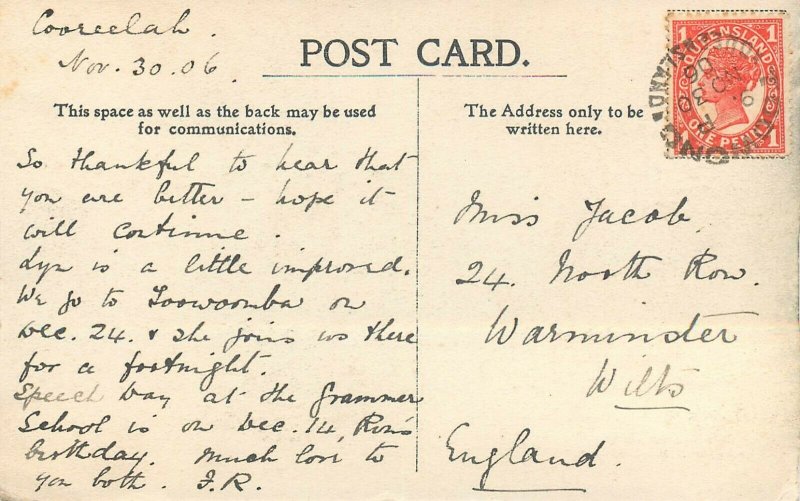 Cooreelah.
Nov. 30. 06.
POST CARD.
This space as well as the back may be used
for communications.
The Address only to be
written here.
QUEENSLAND
1 1
ONE PENNY
1 1
So thankful to hear that
you are better – hope it
will continue.
Lyn is a little improved.
We go to Toowoomba on
Dec. 24. & she joins us there
for a fortnight.
Speech Day at the Grammer
School is on Dec. 14, Ron's
birthday. Much love to
you both. F.R.
Miss Jacob
24. North Row.
Warminster
Wilts
England.